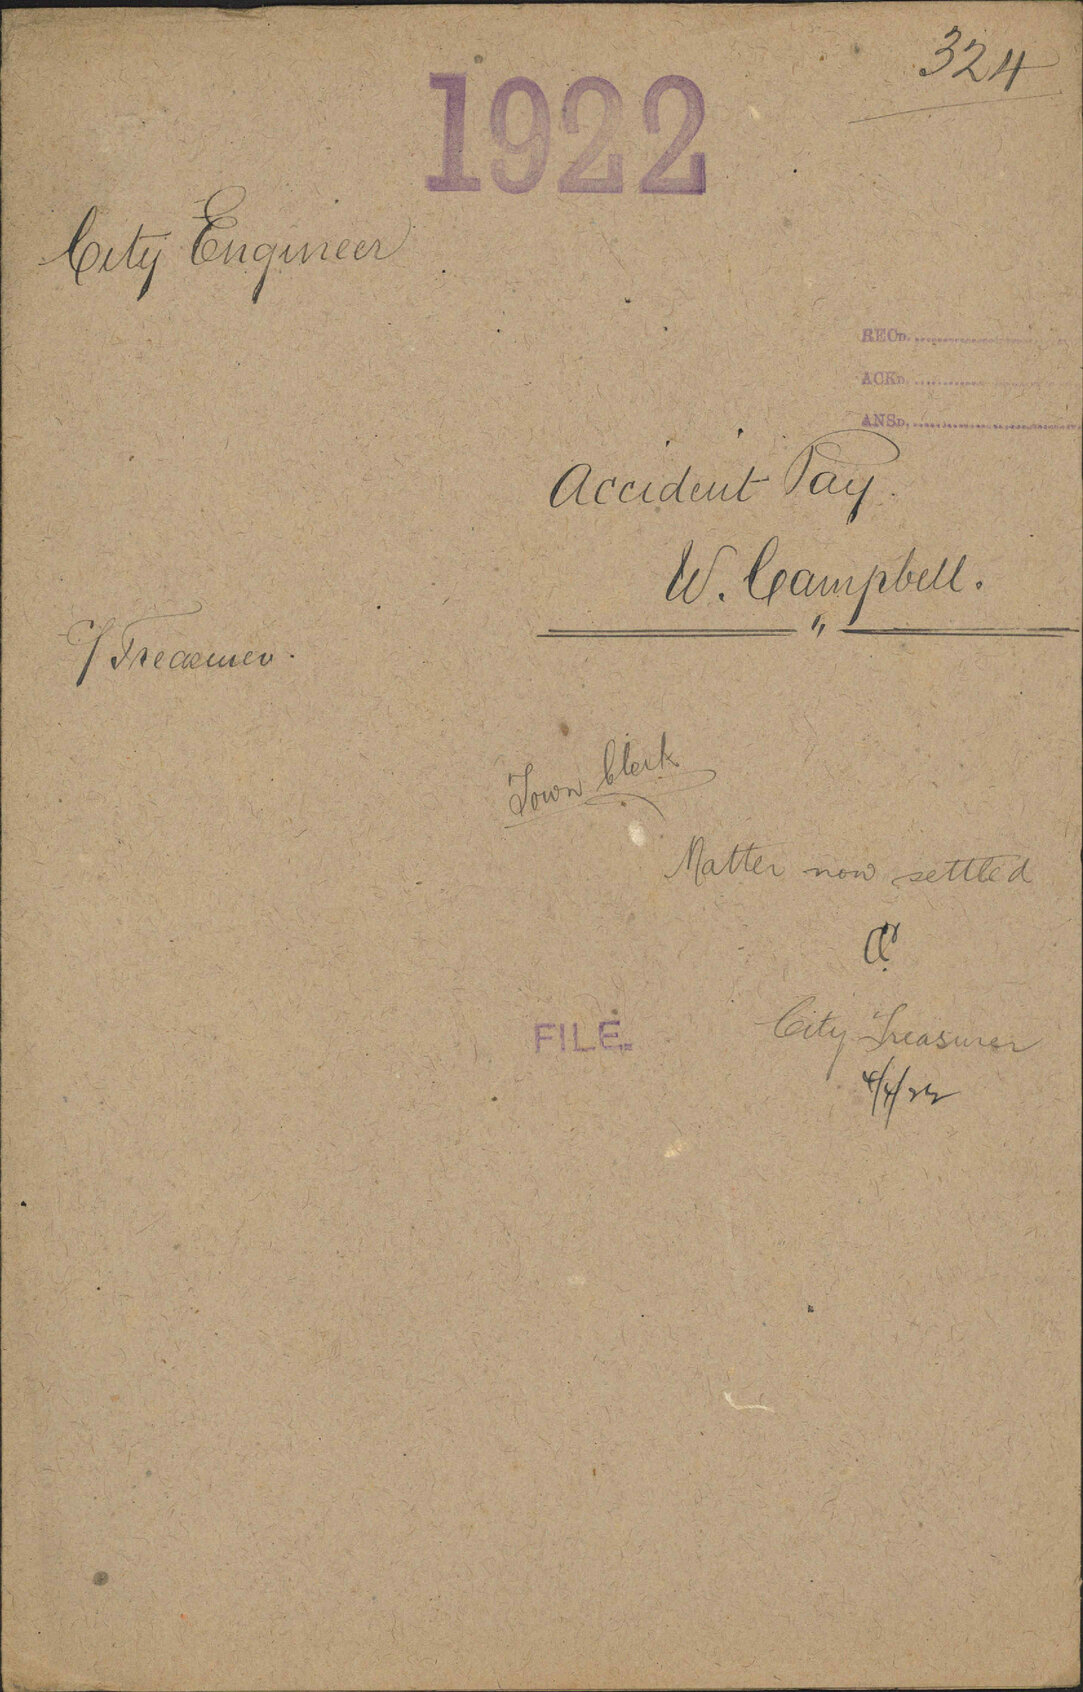 324
1922
City Engineer
RECD.
ACKD.
ANSD.
Accident Pay.
W. Campbell.
C/ Treasurer.
Town Clerk
Matter now settled
City Treasurer
4/4/22
FILE.